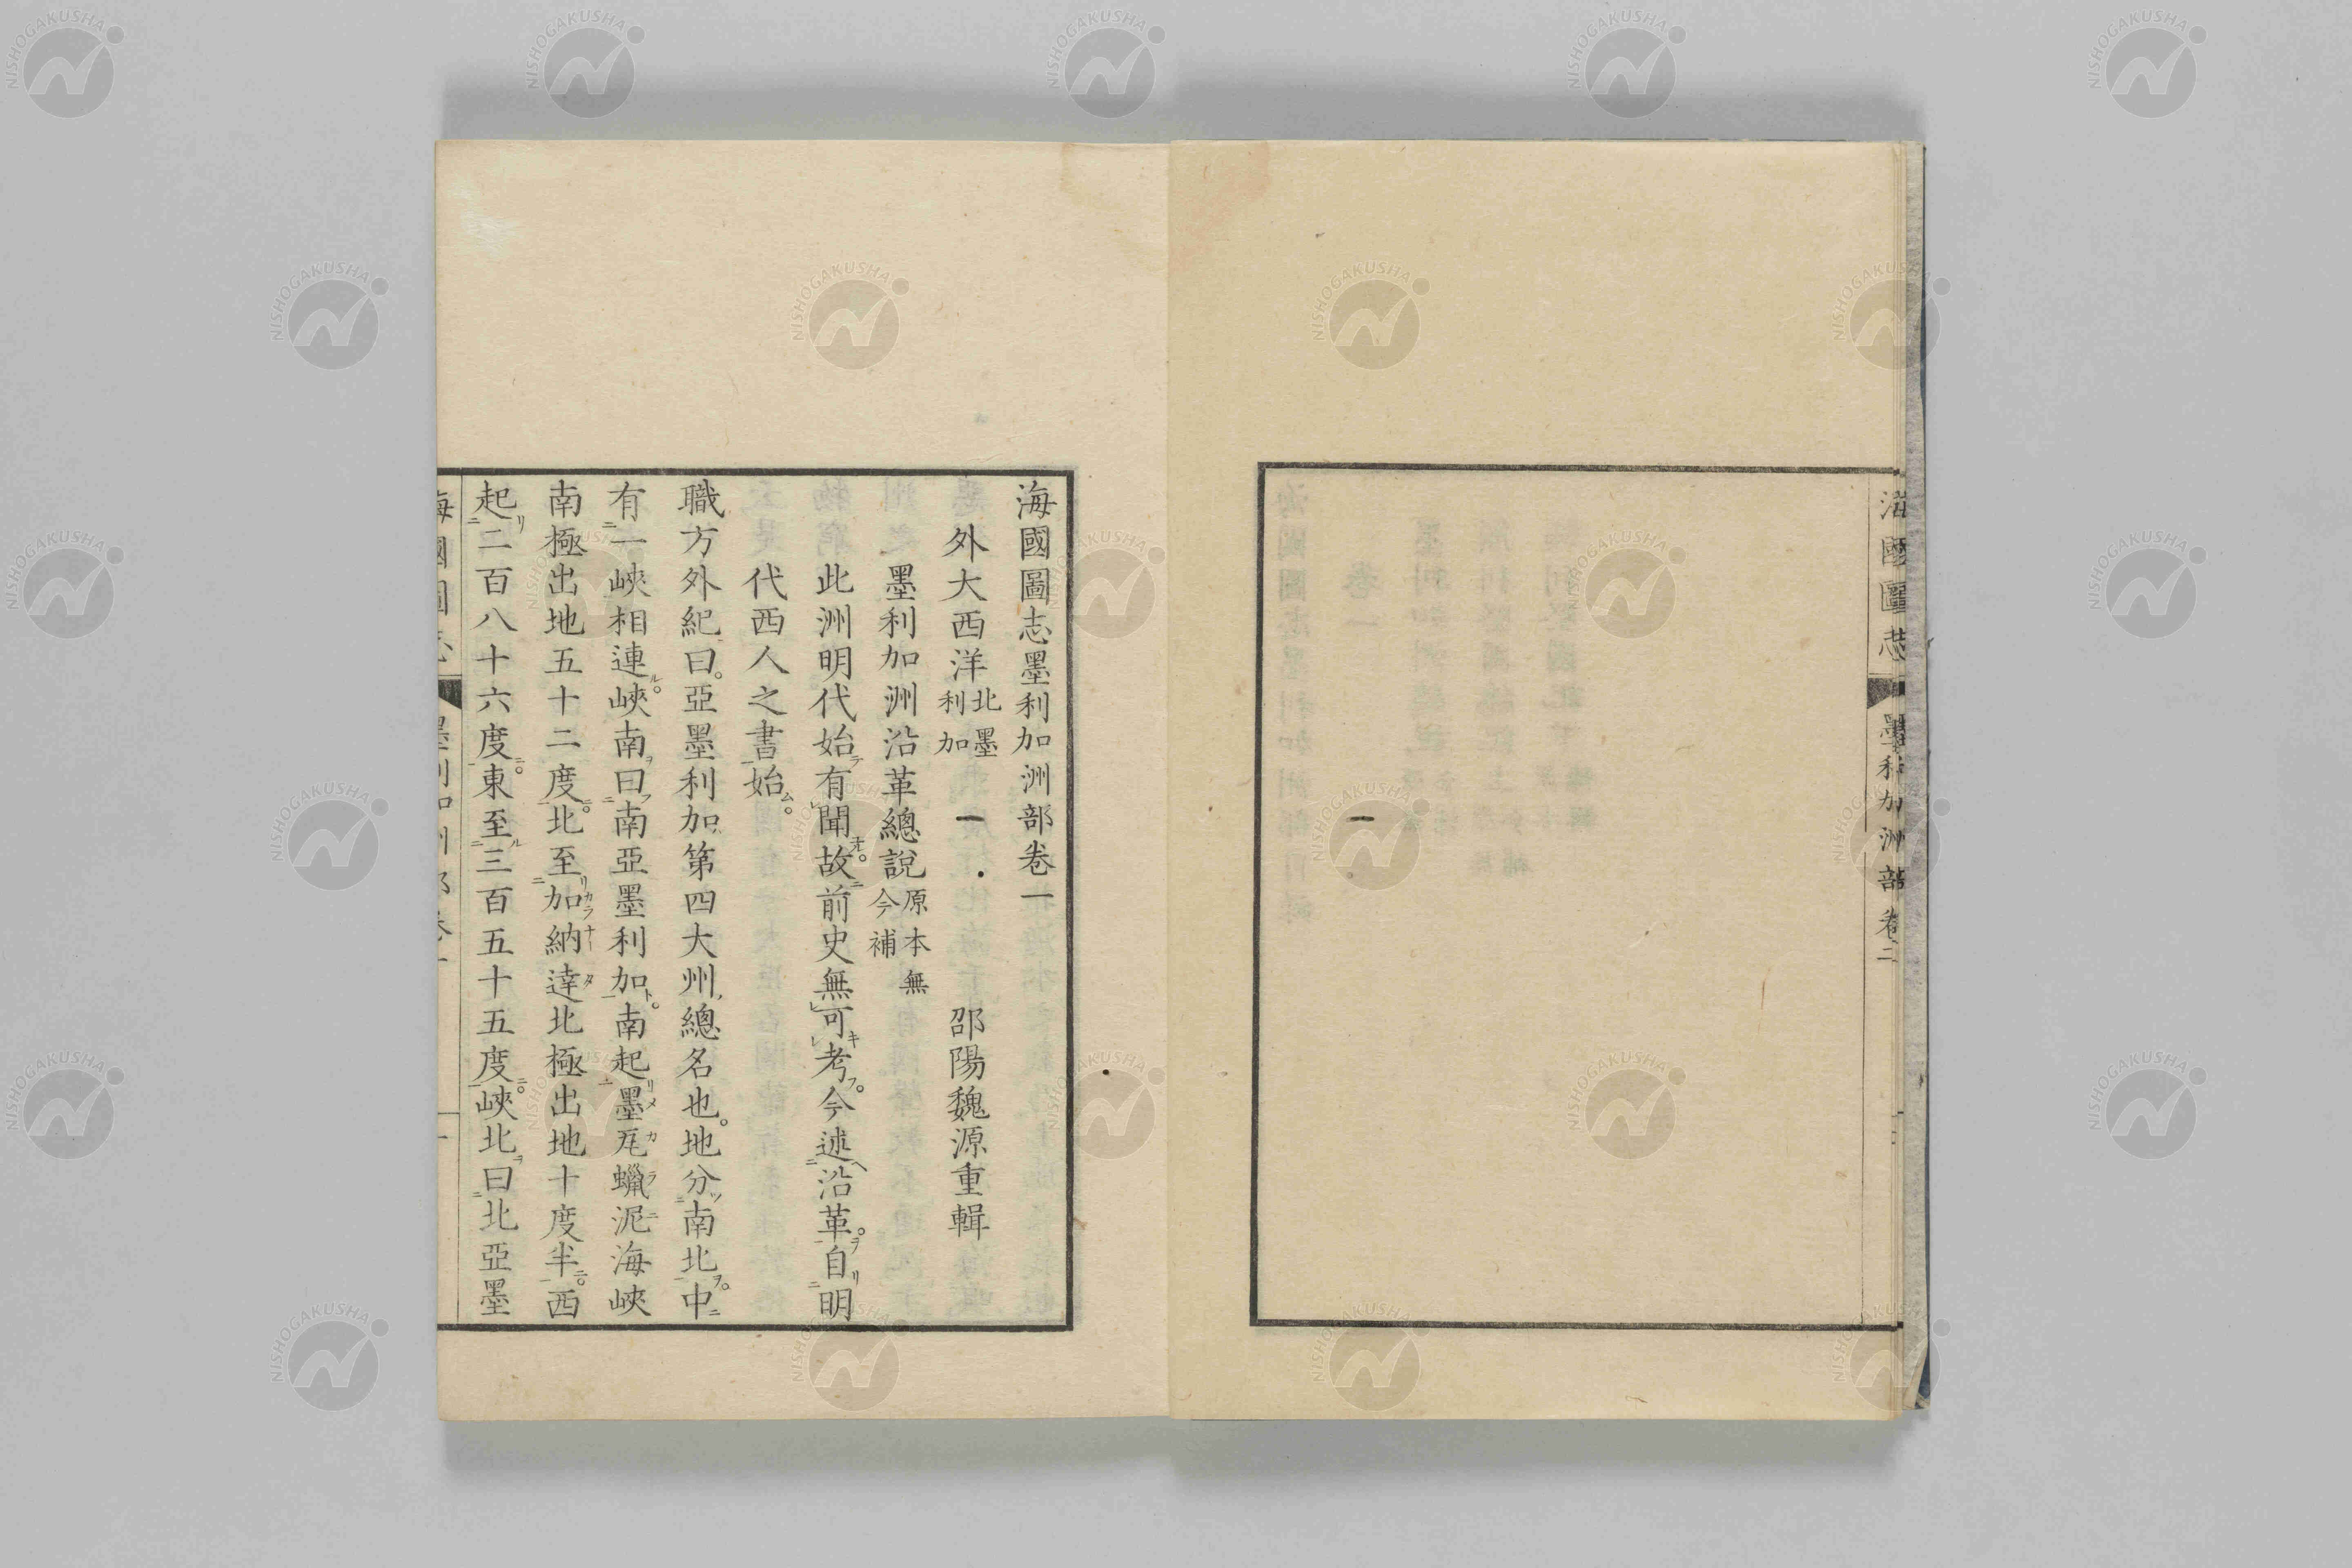 海國圖志
墨利加洲部
海國圖志墨利加洲部卷一
外大西洋 北墨利加 邵陽魏源重輯
墨利加洲沿革總說 原本無今補
此洲明代始有聞故前史無可考今述沿革自明
代西人之書始
職方外紀曰亞墨利加第四大州總名也地分南北中
有一峽相連峽南曰南亞墨利加南起墨瓦蠟泥海峽
南極出地五十二度北至加納達北極出地十度半西
起二百八十六度東至三百五十五度峽北曰北亞墨